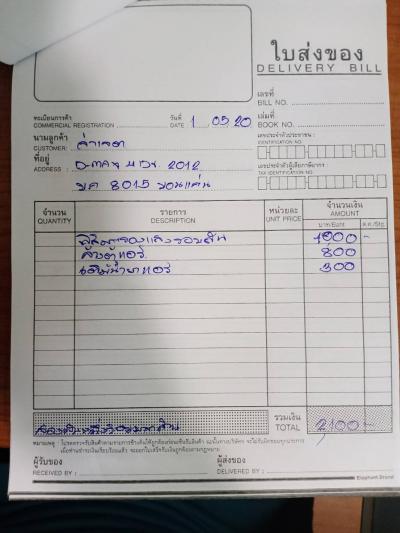 ใบส่งของ
DELIVERY BILL
เลขที่
BILL NO.
ทะเบียนการค้า
COMMERCIAL REGISTRATION
วันที่
DATE 1 05 20
เล่มที่
BOOK NO.
นามลูกค้า
CUSTOMER:
เลขประจำตัวประชาชน :
IDENTIFICATION NO.
ที่อยู่
ADDRESS : D-max 2012
เลขประจำตัวผู้เสียภาษีอากร :
TAX IDENTIFICATION NO.
8015 ขอนแก่น
จำนวน
QUANTITY
รายการ
DESCRIPTION
หน่วยละ
UNIT PRICE
จำนวนเงิน
AMOUNT
บาท/Baht
ส.ต./Stg.
1000 -
ล้างตู้แอร์ 800
เติมน้ำยาแอร์ 300
สองพันหนึ่งร้อยบาทถ้วน
รวมเงิน
TOTAL 2,100 -
หมายเหตุ : โปรดตรวจรับสินค้าตามรายการข้างต้นให้ถูกต้องก่อนเซ็นรับสินค้า
ผู้รับของ
RECEIVED BY :
ผู้ส่งของ
DELIVERED BY :
Elephant Brand